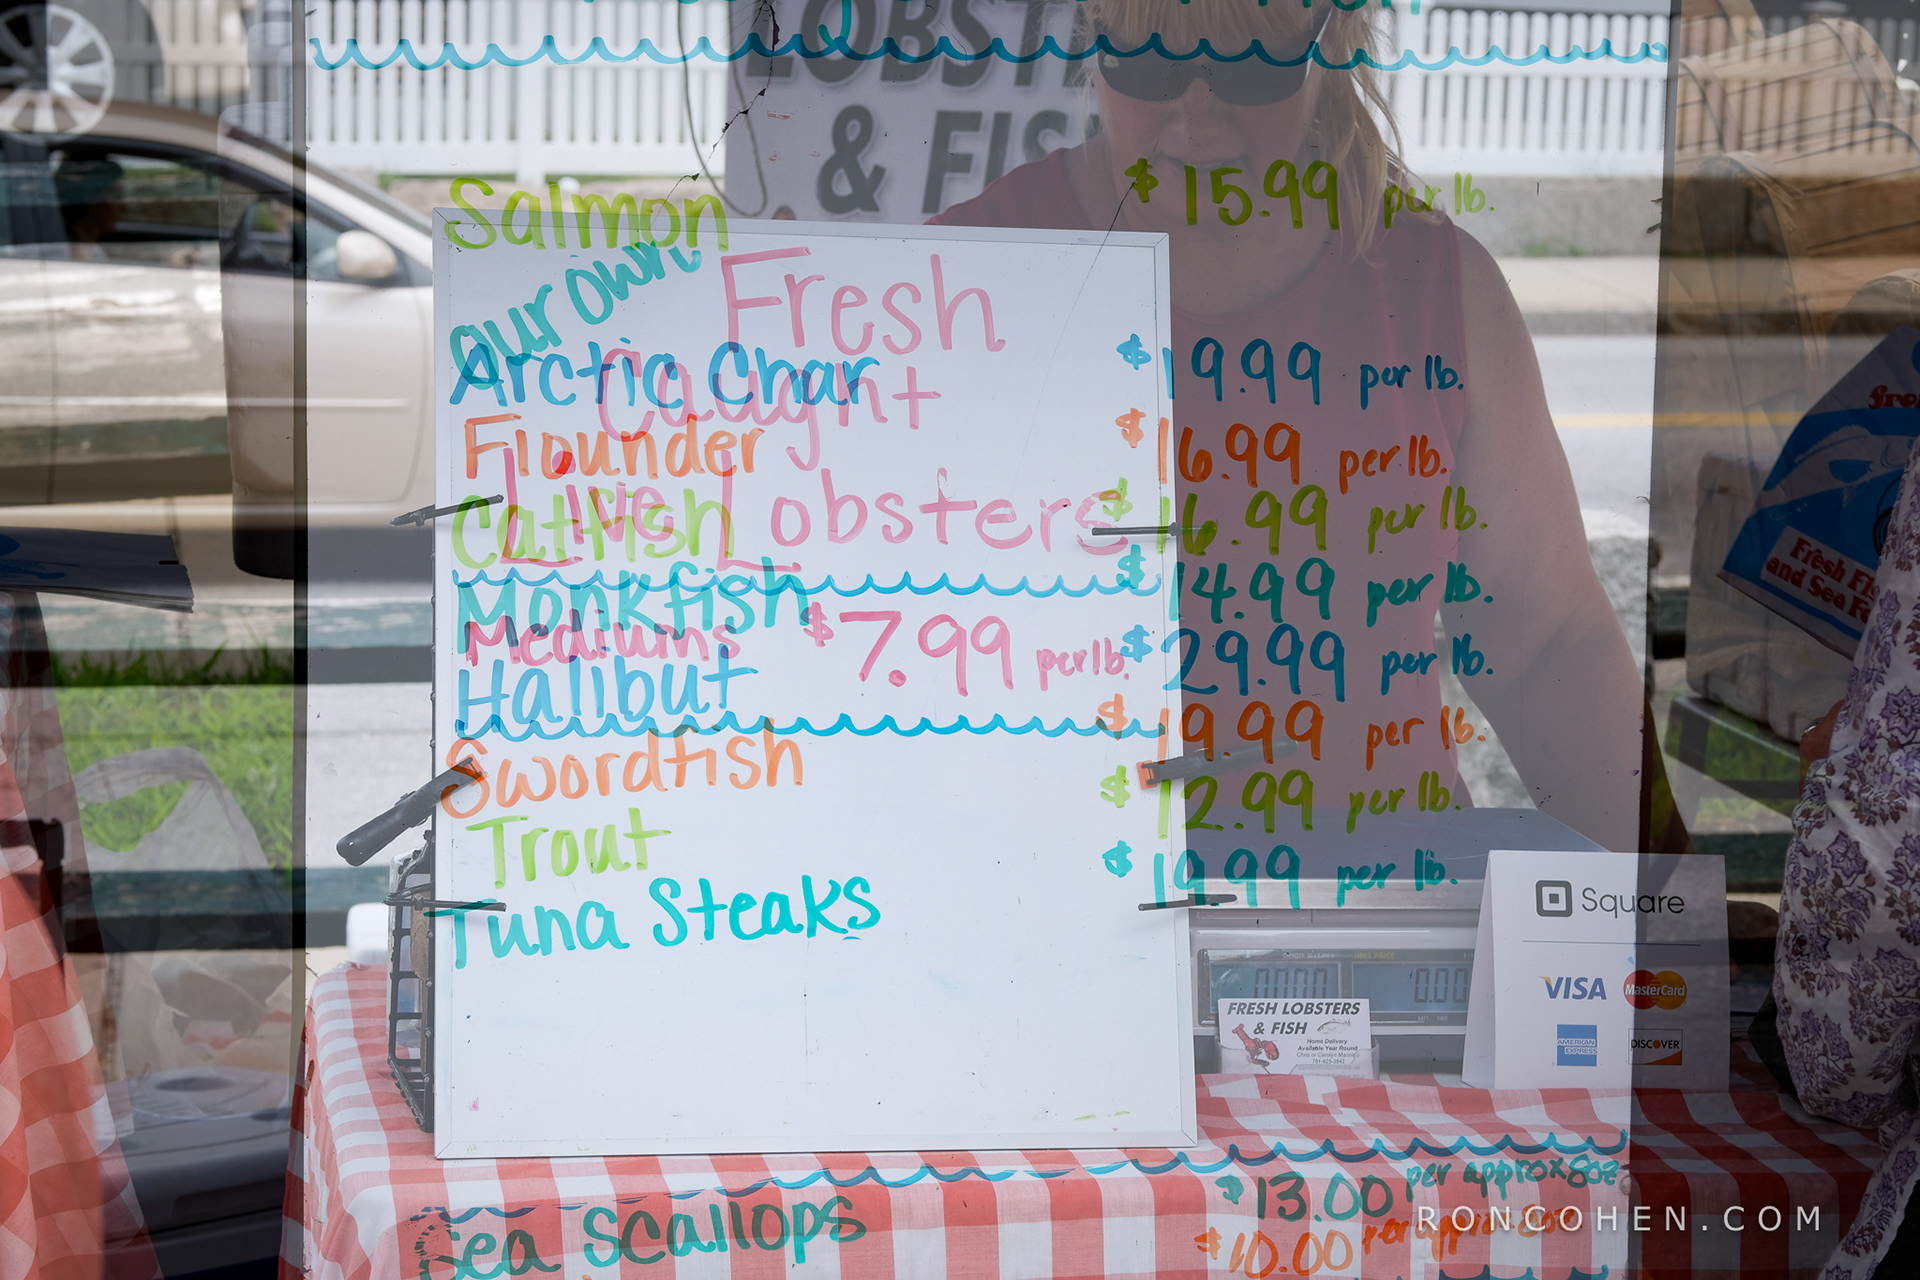 LOBSTE
& FIS
Salmon $15.99 per lb.
our own
Fresh
Arctic Char $19.99 per lb.
Caught
Flounder $16.99 per lb.
Live Lobsters
Catfish $16.99 per lb.
Monkfish $14.99 per lb.
Mediums $7.99 per lb.
Halibut $29.99 per lb.
Swordfish $19.99 per lb.
Trout $12.99 per lb.
Tuna Steaks $19.99 per lb.
Square
VISA MasterCard
AMERICAN EXPRESS DISCOVER
0.00
FRESH LOBSTERS
& FISH
Home Delivery
Available Year Round
Fresh
and Sea
Sea Scallops $13.00 per approx 8oz
$10.00 per approx 8oz
RONCOHEN.COM